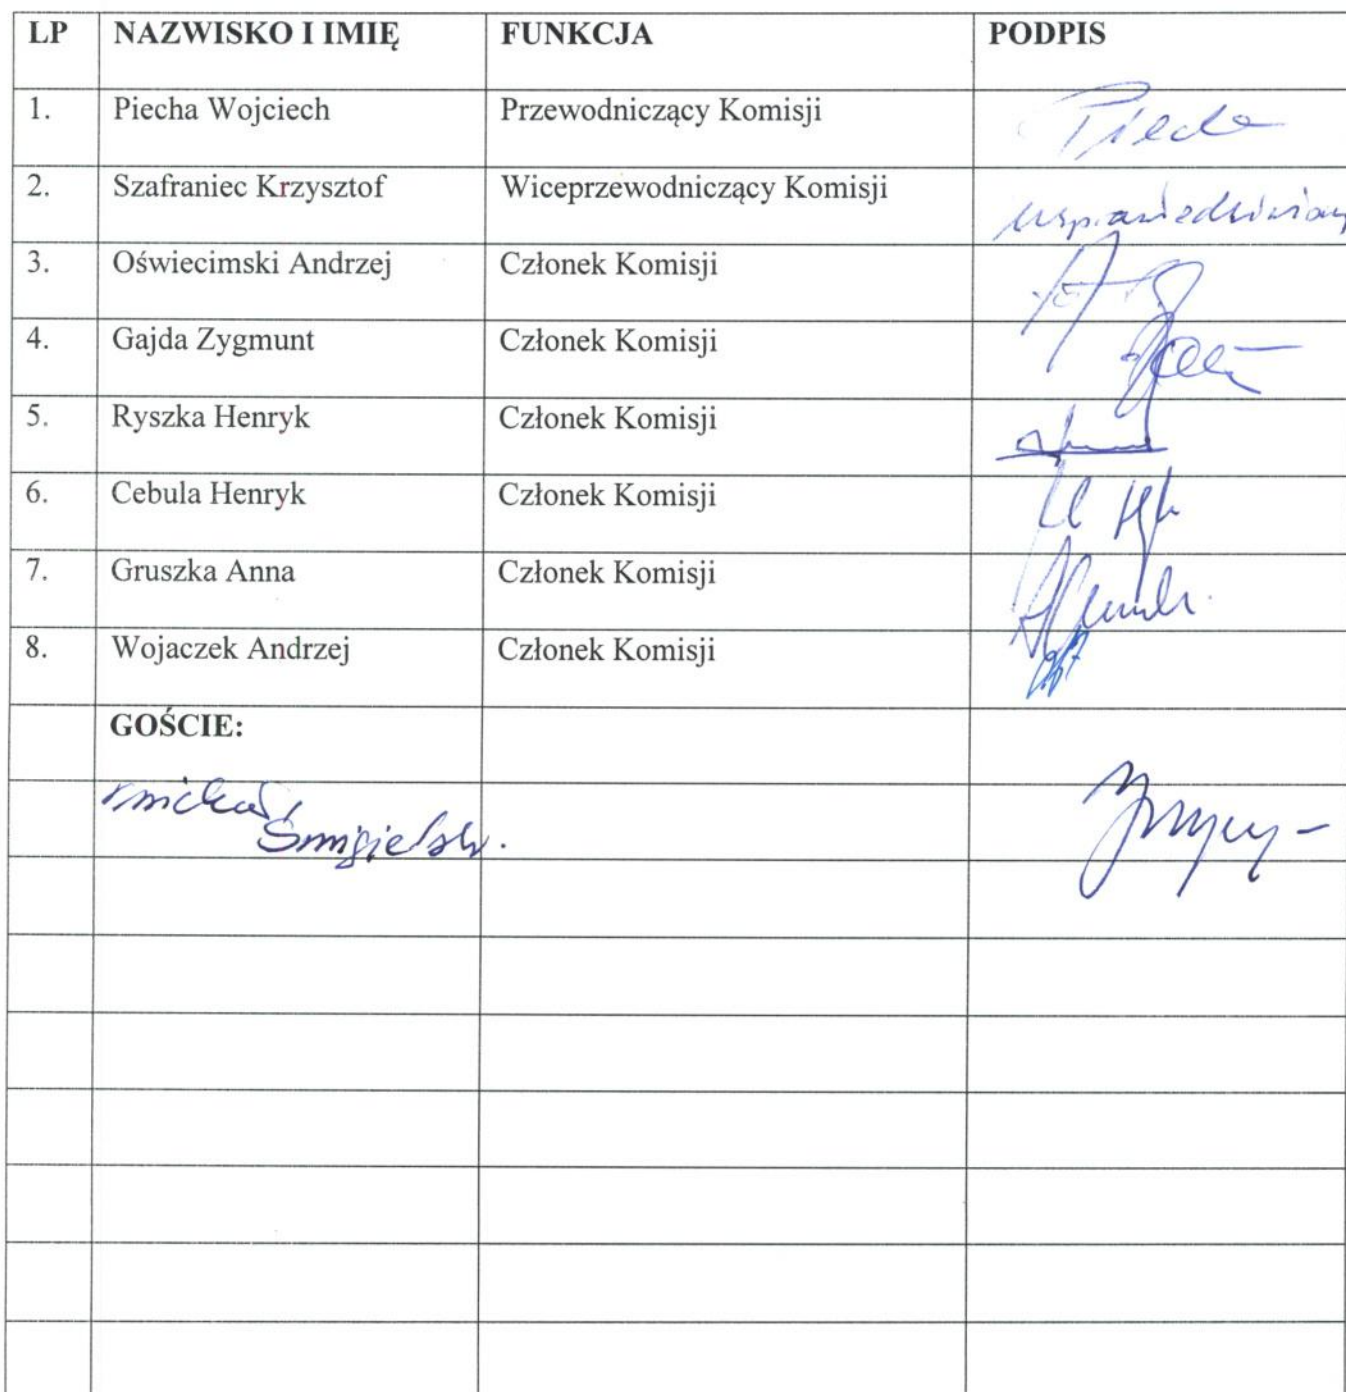 LP NAZWISKO I IMIĘ FUNKCJA PODPIS
1. Piecha Wojciech Przewodniczący Komisji Piecha
2. Szafraniec Krzysztof Wiceprzewodniczący Komisji usprawiedliwiony
3. Oświecimski Andrzej Członek Komisji
4. Gajda Zygmunt Członek Komisji
5. Ryszka Henryk Członek Komisji
6. Cebula Henryk Członek Komisji
7. Gruszka Anna Członek Komisji
8. Wojaczek Andrzej Członek Komisji
GOŚCIE:
Michał
Śmigielski